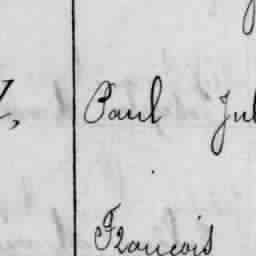 Paul Jul
François